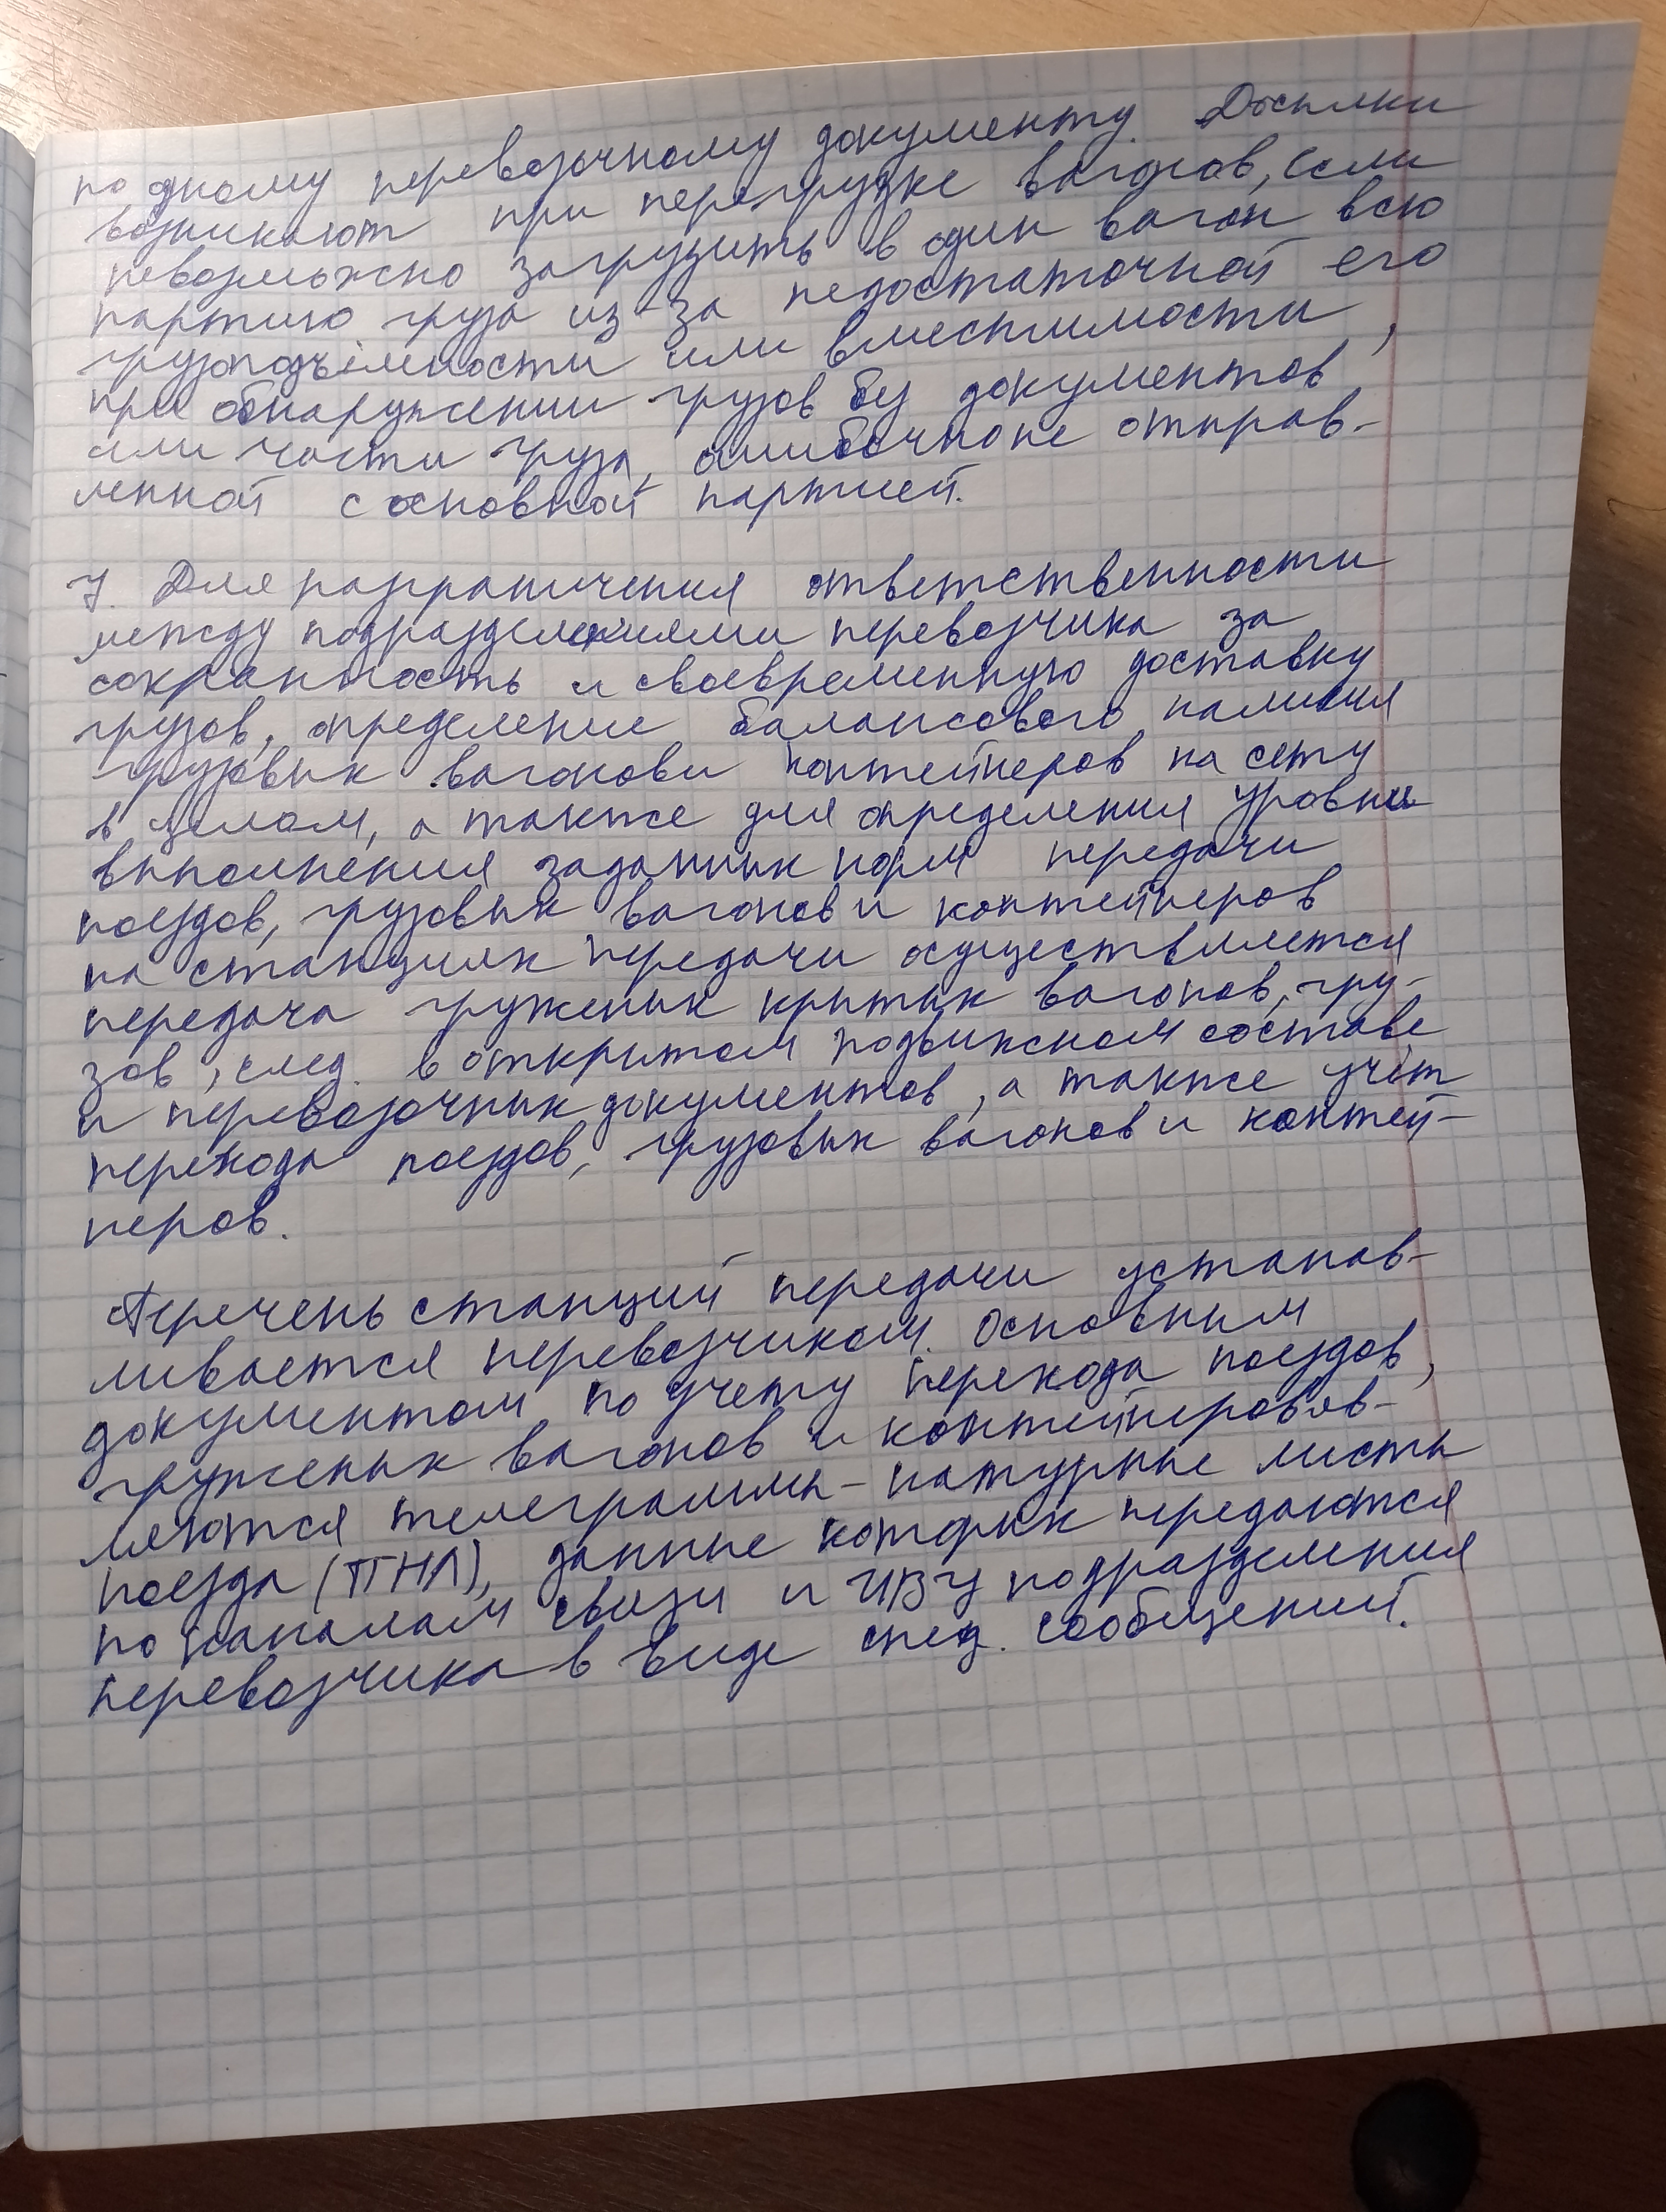 по дному перевозочному документу. Досылки
возникают при перегрузке вагонов, если
невозможно загрузить в один вагон всю
партию груза из-за недостаточной его
грузоподъёмности или вместимости,
при обнаружении грузов без документов
или части груза, ошибочно не отправ-
ленной с основной партией.
7. Для разграничения ответственности
между подразделениями перевозчика за
сохранность и своевременную доставку
грузов, определение балансового наличия
грузовых вагонов и контейнеров на сету
в целом, а также для определения уровня
выполнения заданных норм передачи
поездов, грузовых вагонов и контейнеров
на станциях передачи осуществляется
передача груженых крытых вагонов, гру-
зов, след. в открытом подвижном составе
и перевозочных документов, а также учёт
перехода поездов, грузовых вагонов и контей-
неров.
Перечень станций передачи устанав-
ливается перевозчиком. Основным
документом по учету перехода поездов,
груженых вагонов и контейнеров яв-
ляются телеграммы-натурные листы
поезда (ТГНЛ), данные которых передаются
по каналам связи и ИВЦ подразделения
перевозчика в виде спец. сообщений.